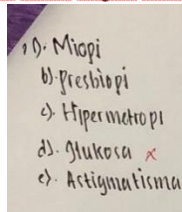 1). Miopi
b). Presbiopi
c). Hipermetropi
d). Glukosa x
e). Astigmatisma